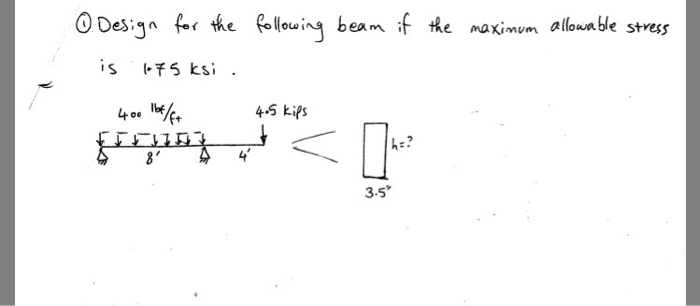 ① Design for the following beam if the maximum allowable stress
is 1.75 ksi .
400 lbf/ft 4.5 kips
h=?
8' 4'
3.5"